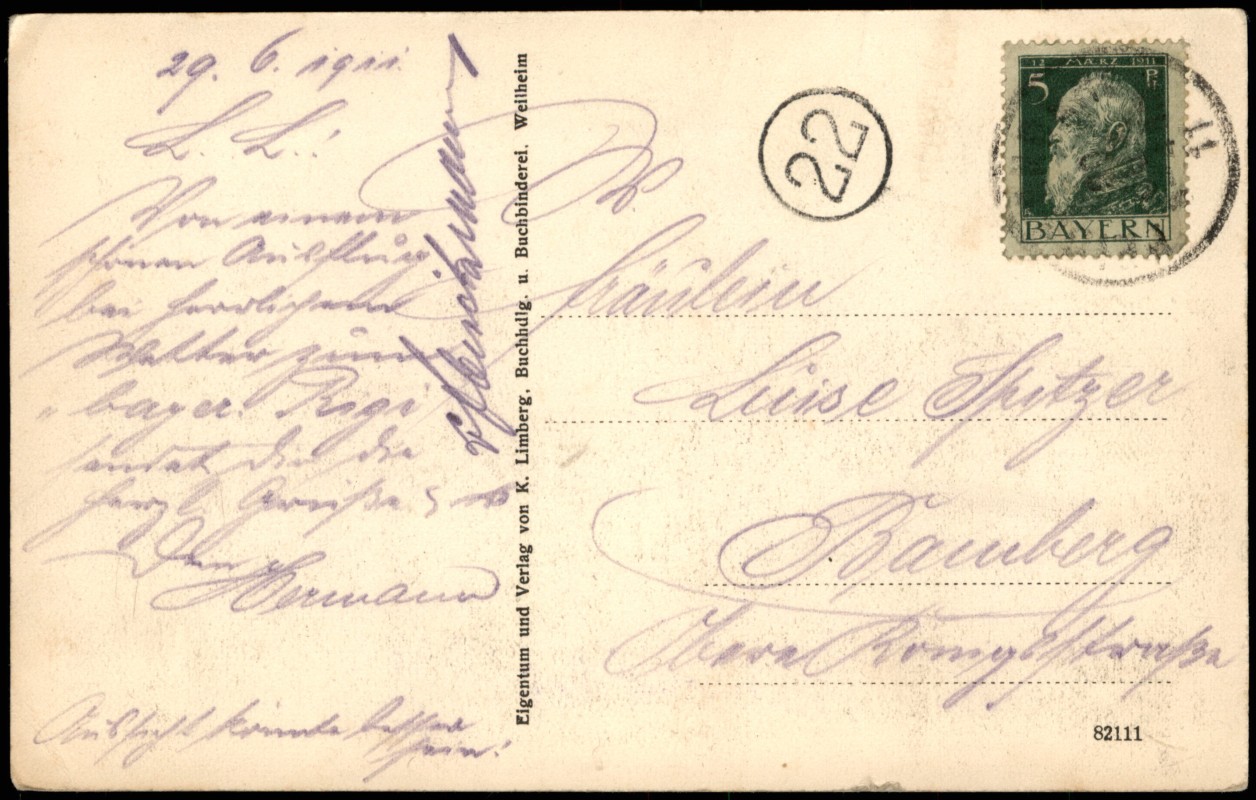 29. 6. 1911.
L. L.!
Von einem
schönen Ausflug
bei herrlichem
Wetter zum
„bayer. Rigi"
sendet Dir die
herzl. Grüße
Dein Hermann
Aussicht könnte besser
sein!
Eigentum und Verlag von K. Limberg, Buchhdlg. u. Buchbinderei. Weilheim
22
12 MÄRZ 1911
5 Pf
BAYERN
11
Fräulein
Luise Spitzer
Bamberg
Obere Königsstraße
82111